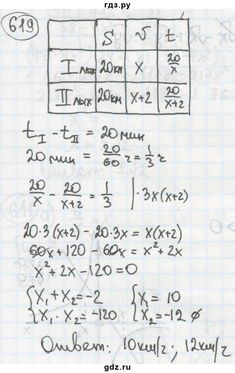 гдз.ру
619
S V t
I лых 20км x 20/x
II лых 20км x+2 20/(x+2)
t_I - t_II = 20 мин
20 мин = 20/60 ч = 1/3 ч
20/x - 20/(x+2) = 1/3 | ·3x(x+2)
20·3(x+2) - 20·3x = x(x+2)
60x + 120 - 60x = x² + 2x
x² + 2x - 120 = 0
{ x₁ + x₂ = -2 { x₁ = 10
{ x₁ · x₂ = -120 { x₂ = -12 ∅
Ответ: 10км/ч; 12км/ч
gdz.ru